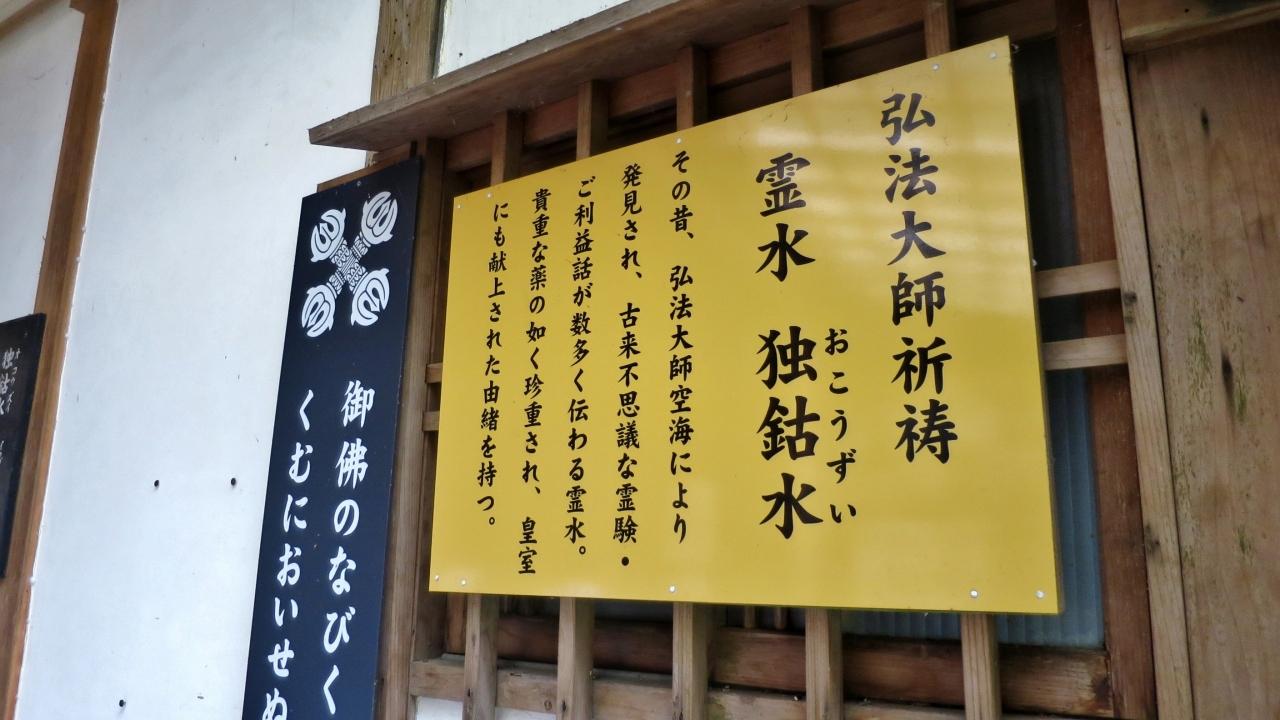 弘法大師祈祷
霊水 独鈷水
おこうずい
その昔、弘法大師空海により
発見され、古来不思議な霊験・
ご利益話が数多く伝わる霊水。
貴重な薬の如く珍重され、皇室
にも献上された由緒を持つ。
御佛のなびく
くむにおいせぬ